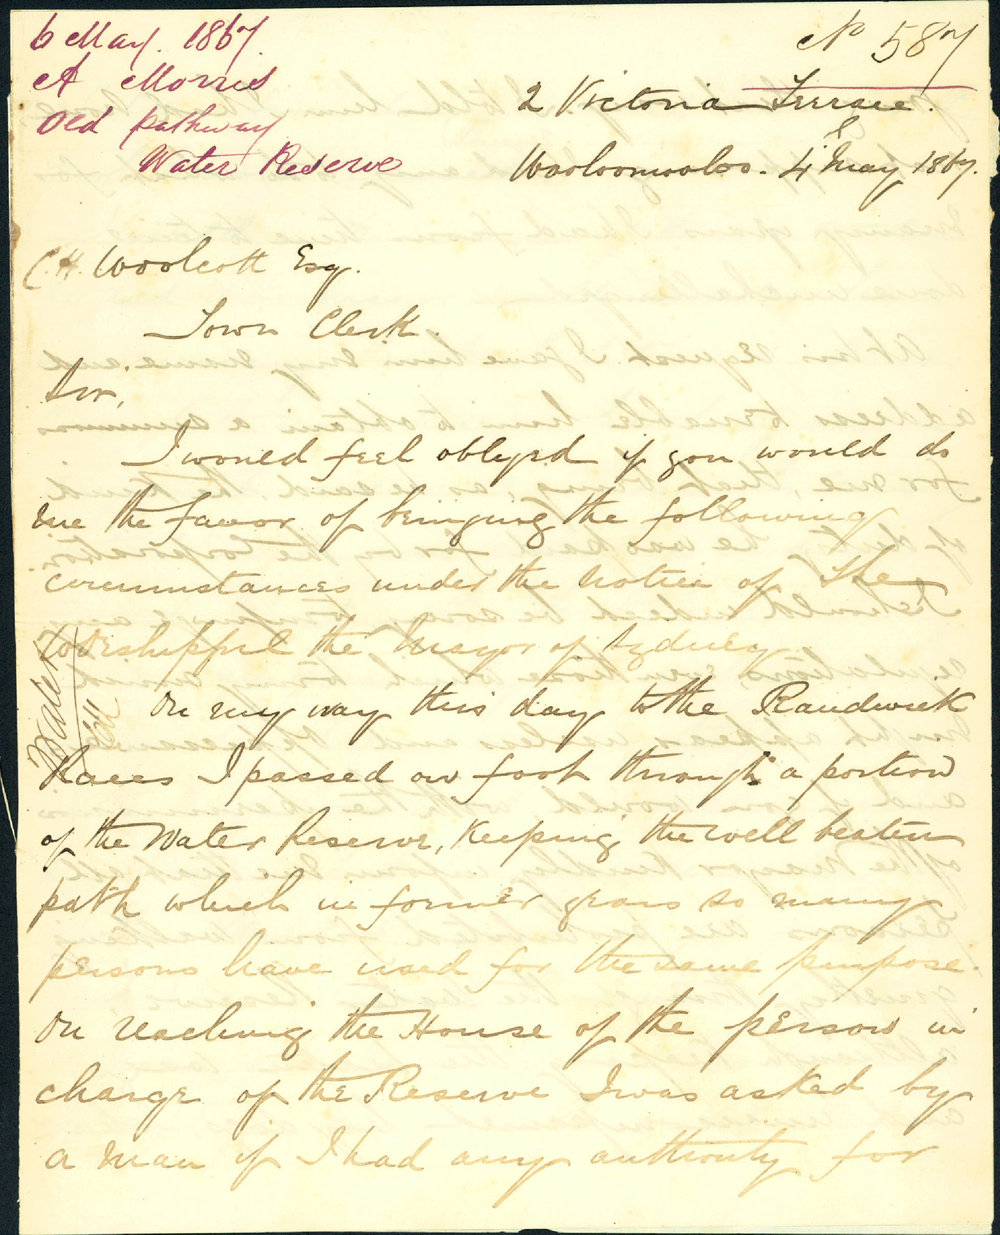 6 May. 1867.
A Morris
Old pathway
Water Reserve
No 587
2 Victoria Terrace.
Wooloomooloo. 4th May 1867.
C.H. Woolcott Esq.
Town Clerk.
Sir,
I would feel obliged if you would do
me the favor of bringing the following
circumstances under the notice of The
Worshipful the Mayor of Sydney.
On my way this day to the Randwick
Races I passed on foot through a portion
of the Water Reserve, Keeping the well beaten
path which in former years so many
persons have used for the same purpose.
On reaching the House of the person in
charge of the Reserve I was asked by
a man if I had any authority for
Water